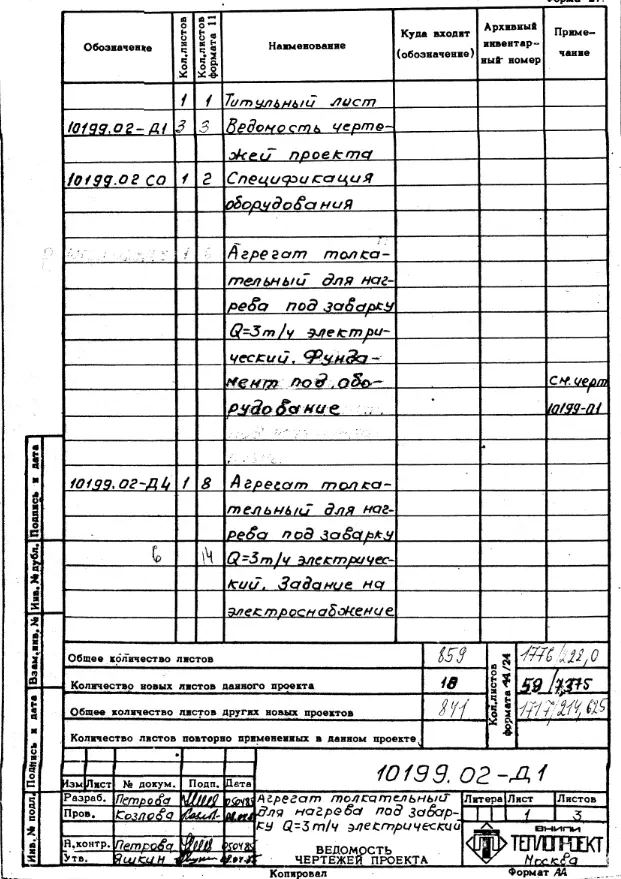 Обозначение Кол.листов Кол.листов формата 11 Наименование Куда входит (обозначение) Архивный инвентар-ный номер Приме-чание
1 1 Титульный лист
10199.02-Д1 3 3 Ведомость черте-
жей проекта
10199.02 СО 1 2 Спецификация
оборудования
Агрегат толка-
тельный для наг-
рева под заварку
Q=3т/ч электри-
ческий. Фунда-
мент под обо- См. черт
рудование 10199-01
10199.02-Д4 1 8 Агрегат толка-
тельный для наг-
рева под заварку
6 14 Q=3т/ч электричес-
кий. Задание на
электроснабжение
Общее количество листов 859 1776/222,0
Количество новых листов данного проекта 18 59/7,375
Общее количество листов других новых проектов 841 1717/214,625
Количество листов повторно примененных в данном проекте
Кол.листов формата 11/24
Инв.№ подл. Подпись и дата Взам.инв.№ Инв.№дубл. Подпись и дата
10199.02-Д1
Изм Лист № докум. Подп. Дата
Разраб. Петрова 050485
Пров. Козлова
Н.контр. Петрова 050485
Утв. Яшкин
Агрегат толкательный
для нагрева под завар-
ку Q=3т/ч электрический
ВЕДОМОСТЬ
ЧЕРТЕЖЕЙ ПРОЕКТА
Литера Лист Листов
1 3
ВНИПИ
ТЕПЛОПРОЕКТ
Москва
Копировал Формат